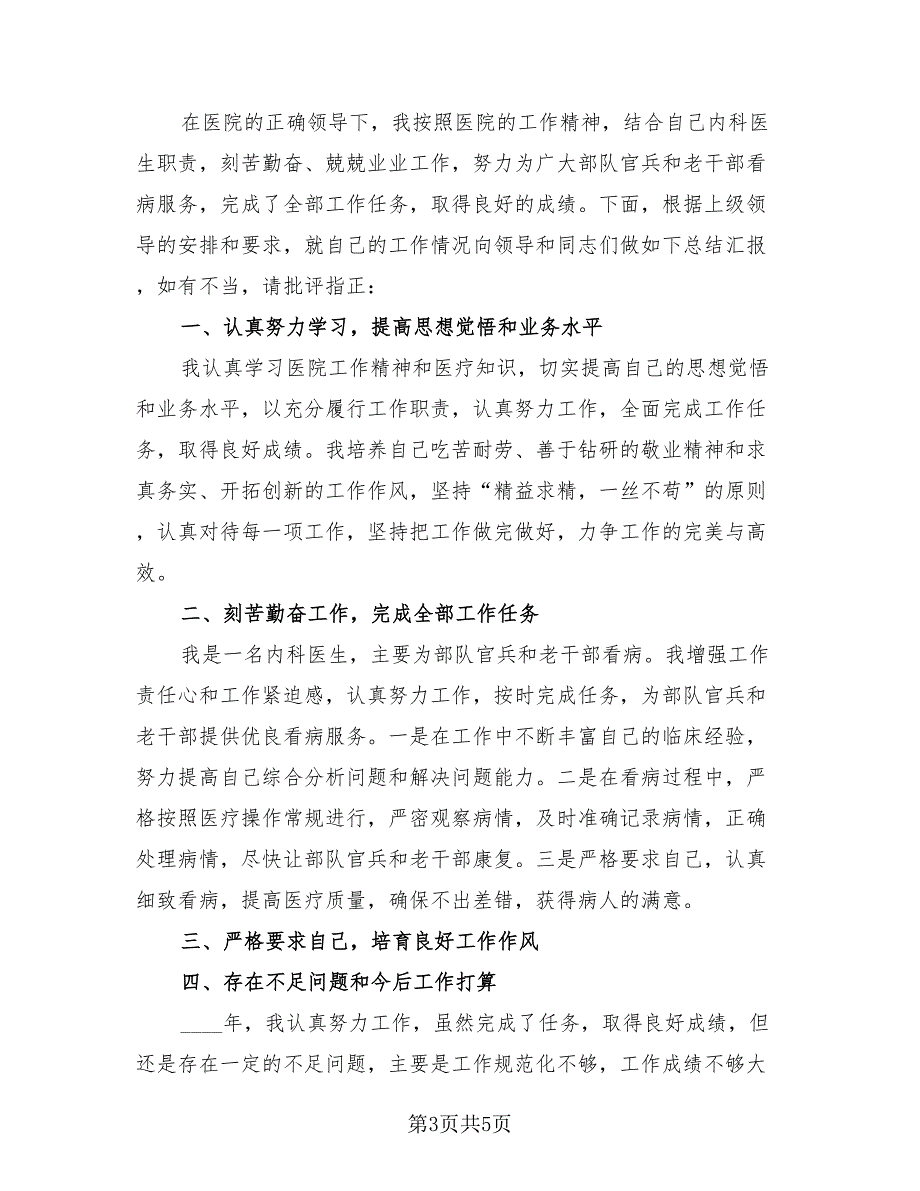 在医院的正确领导下，我按照医院的工作精神，结合自己内科医
生职责，刻苦勤奋、兢兢业业工作，努力为广大部队官兵和老干部看
病服务，完成了全部工作任务，取得良好的成绩。下面，根据上级领
导的安排和要求，就自己的工作情况向领导和同志们做如下总结汇报
，如有不当，请批评指正：
一、认真努力学习，提高思想觉悟和业务水平
我认真学习医院工作精神和医疗知识，切实提高自己的思想觉悟
和业务水平，以充分履行工作职责，认真努力工作，全面完成工作任
务，取得良好成绩。我培养自己吃苦耐劳、善于钻研的敬业精神和求
真务实、开拓创新的工作作风，坚持“精益求精，一丝不苟”的原则
，认真对待每一项工作，坚持把工作做完做好，力争工作的完美与高
效。
二、刻苦勤奋工作，完成全部工作任务
我是一名内科医生，主要为部队官兵和老干部看病。我增强工作
责任心和工作紧迫感，认真努力工作，按时完成任务，为部队官兵和
老干部提供优良看病服务。一是在工作中不断丰富自己的临床经验，
努力提高自己综合分析问题和解决问题能力。二是在看病过程中，严
格按照医疗操作常规进行，严密观察病情，及时准确记录病情，正确
处理病情，尽快让部队官兵和老干部康复。三是严格要求自己，认真
细致看病，提高医疗质量，确保不出差错，获得病人的满意。
三、严格要求自己，培育良好工作作风
四、存在不足问题和今后工作打算
____年，我认真努力工作，虽然完成了任务，取得良好成绩，但
还是存在一定的不足问题，主要是工作规范化不够，工作成绩不够大
第3页共5页